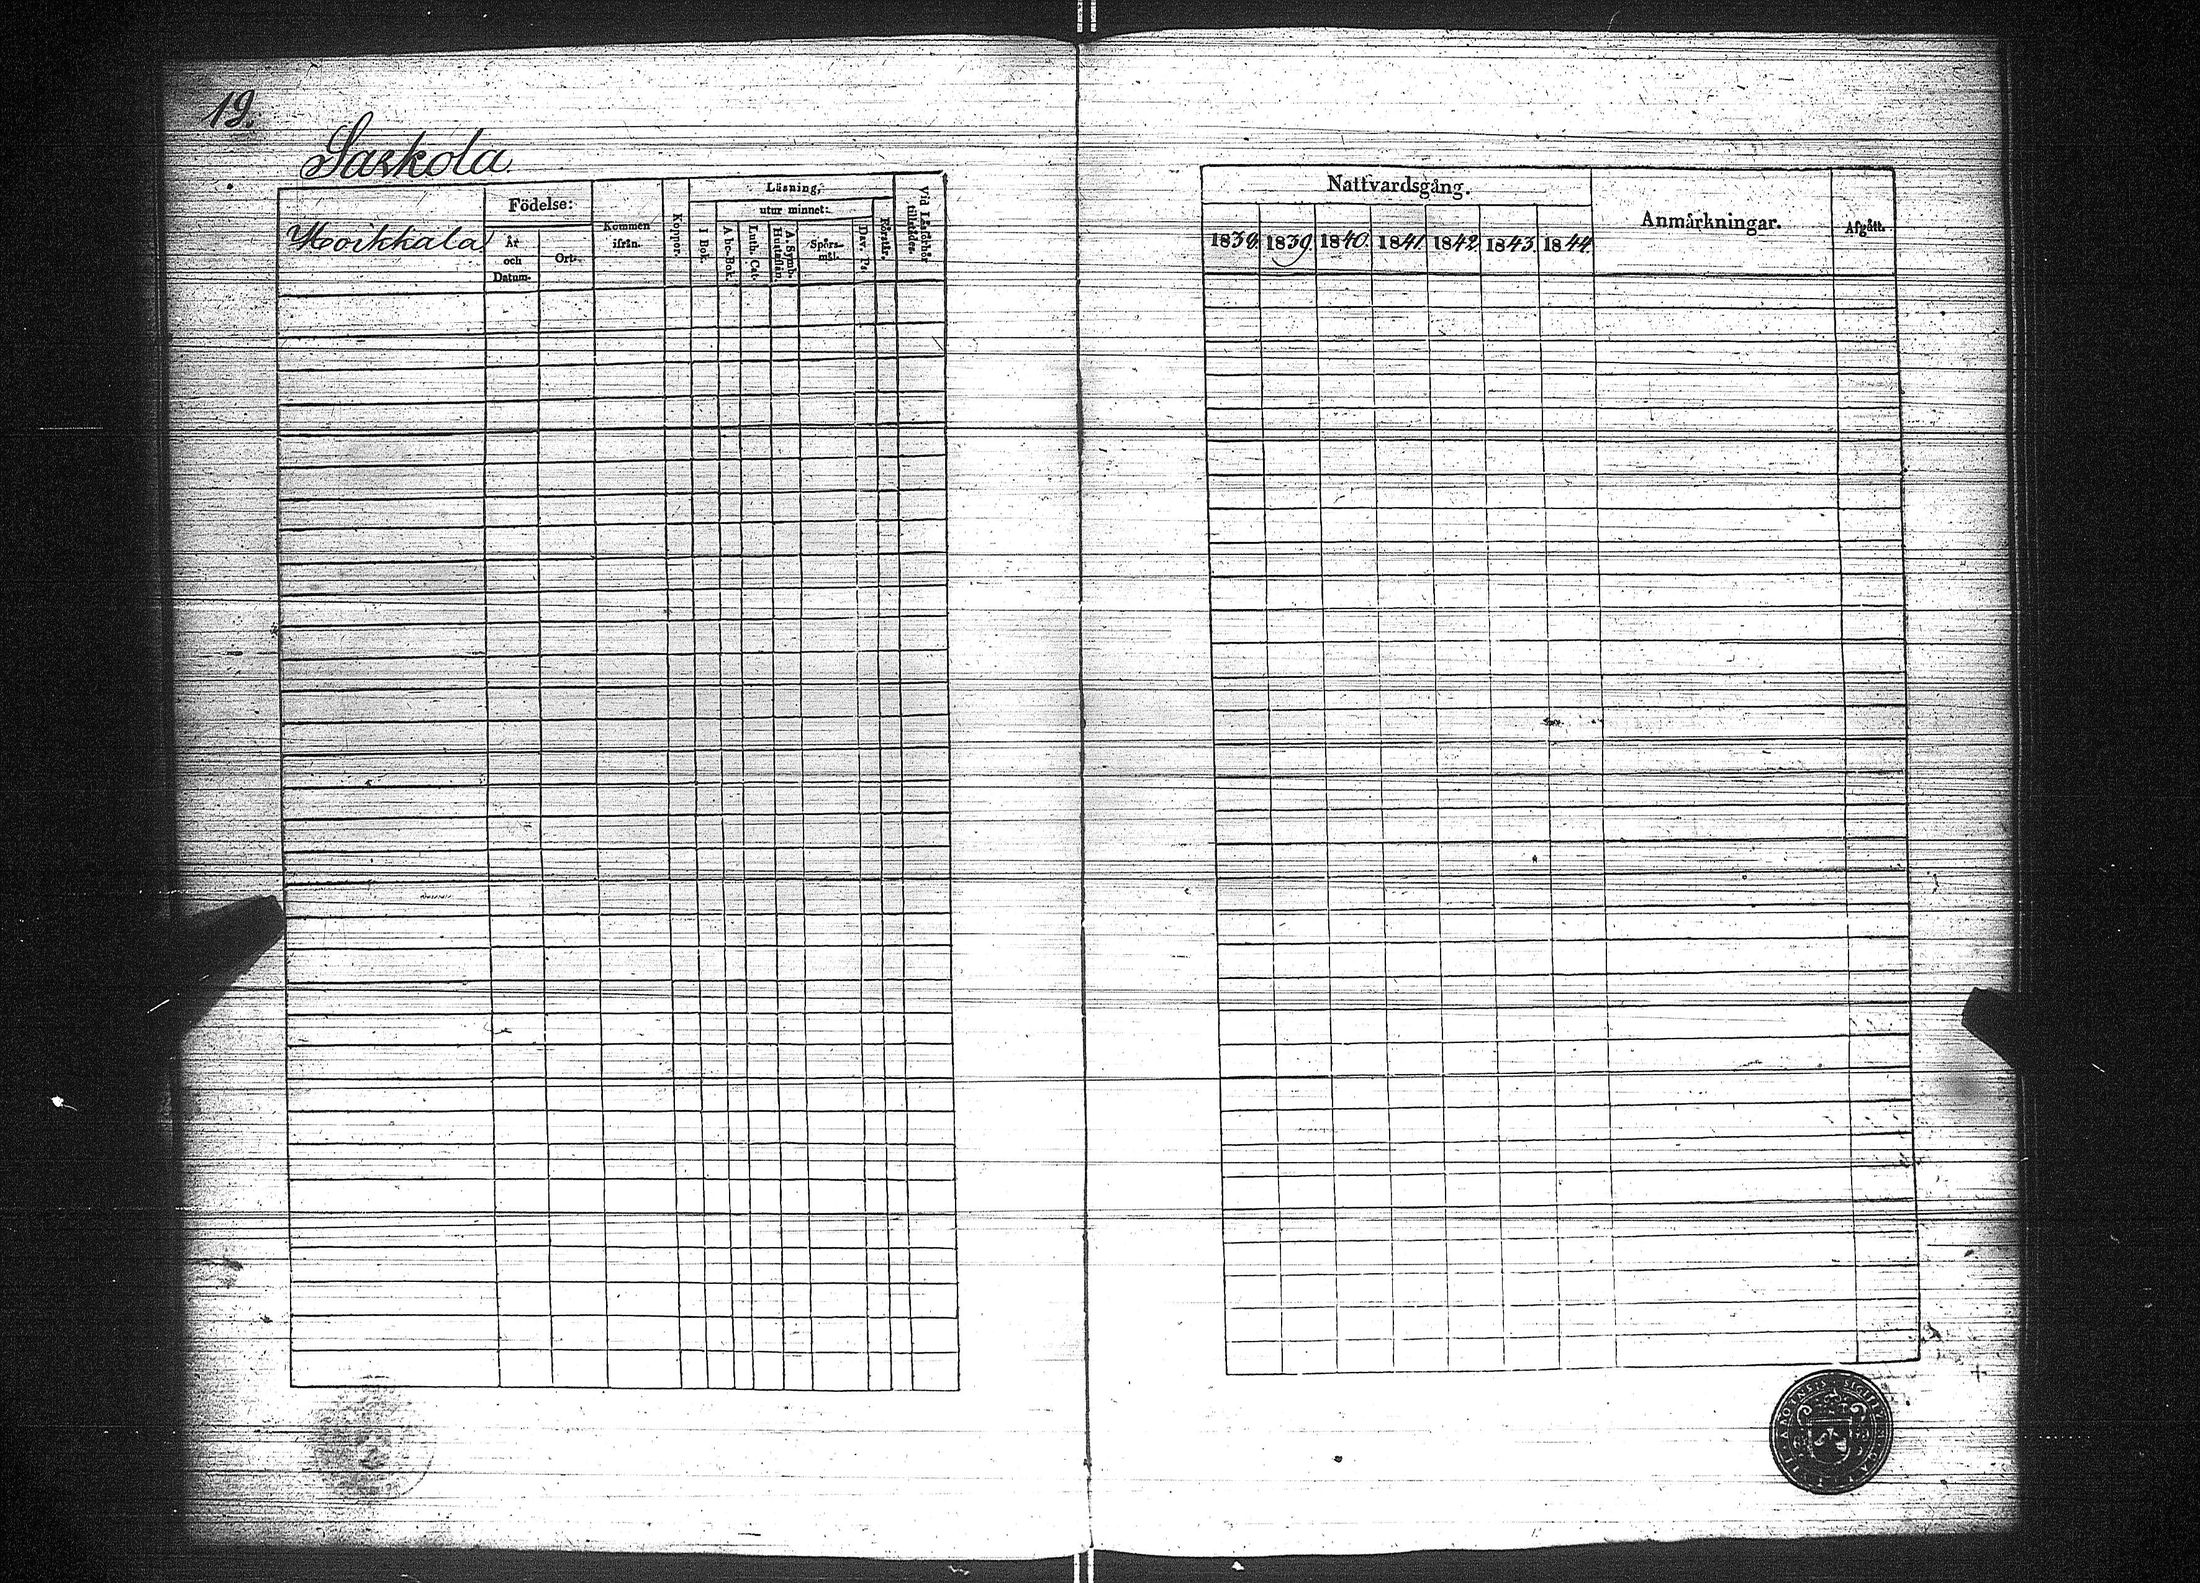 19.
Saskola.
Hoikkala
Födelse:
År
och
Datum.
Ort.
Kommen
ifrån.
Koppor.
Läsning,
I Bok.
utur minnet:
A bc-Bok.
Luth. Cat.
A. Symb.
Hustaflan.
Spörs-
mål.
Dav. Ps.
Förstår.
Vid Läsförhör
tillstädes.
Nattvardsgång.
1838. 1839. 1840. 1841. 1842. 1843. 1844.
Anmärkningar.
Afgått.